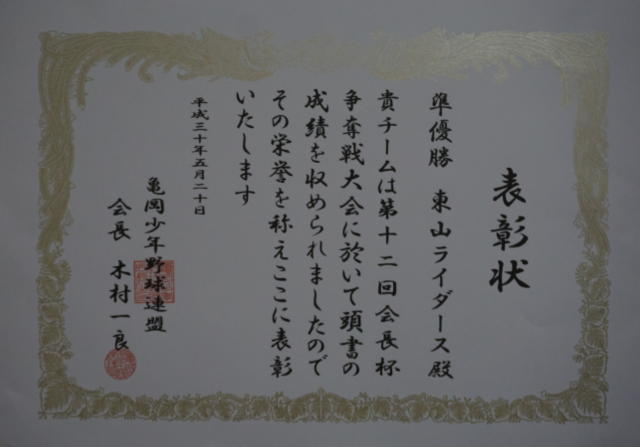 表彰状
準優勝 東山ライダース殿
貴チームは第十二回会長杯
争奪戦大会に於いて頭書の
成績を収められましたので
その栄誉を称えここに表彰
いたします
平成三十年五月二十日
亀岡少年野球連盟
会長 木村一良